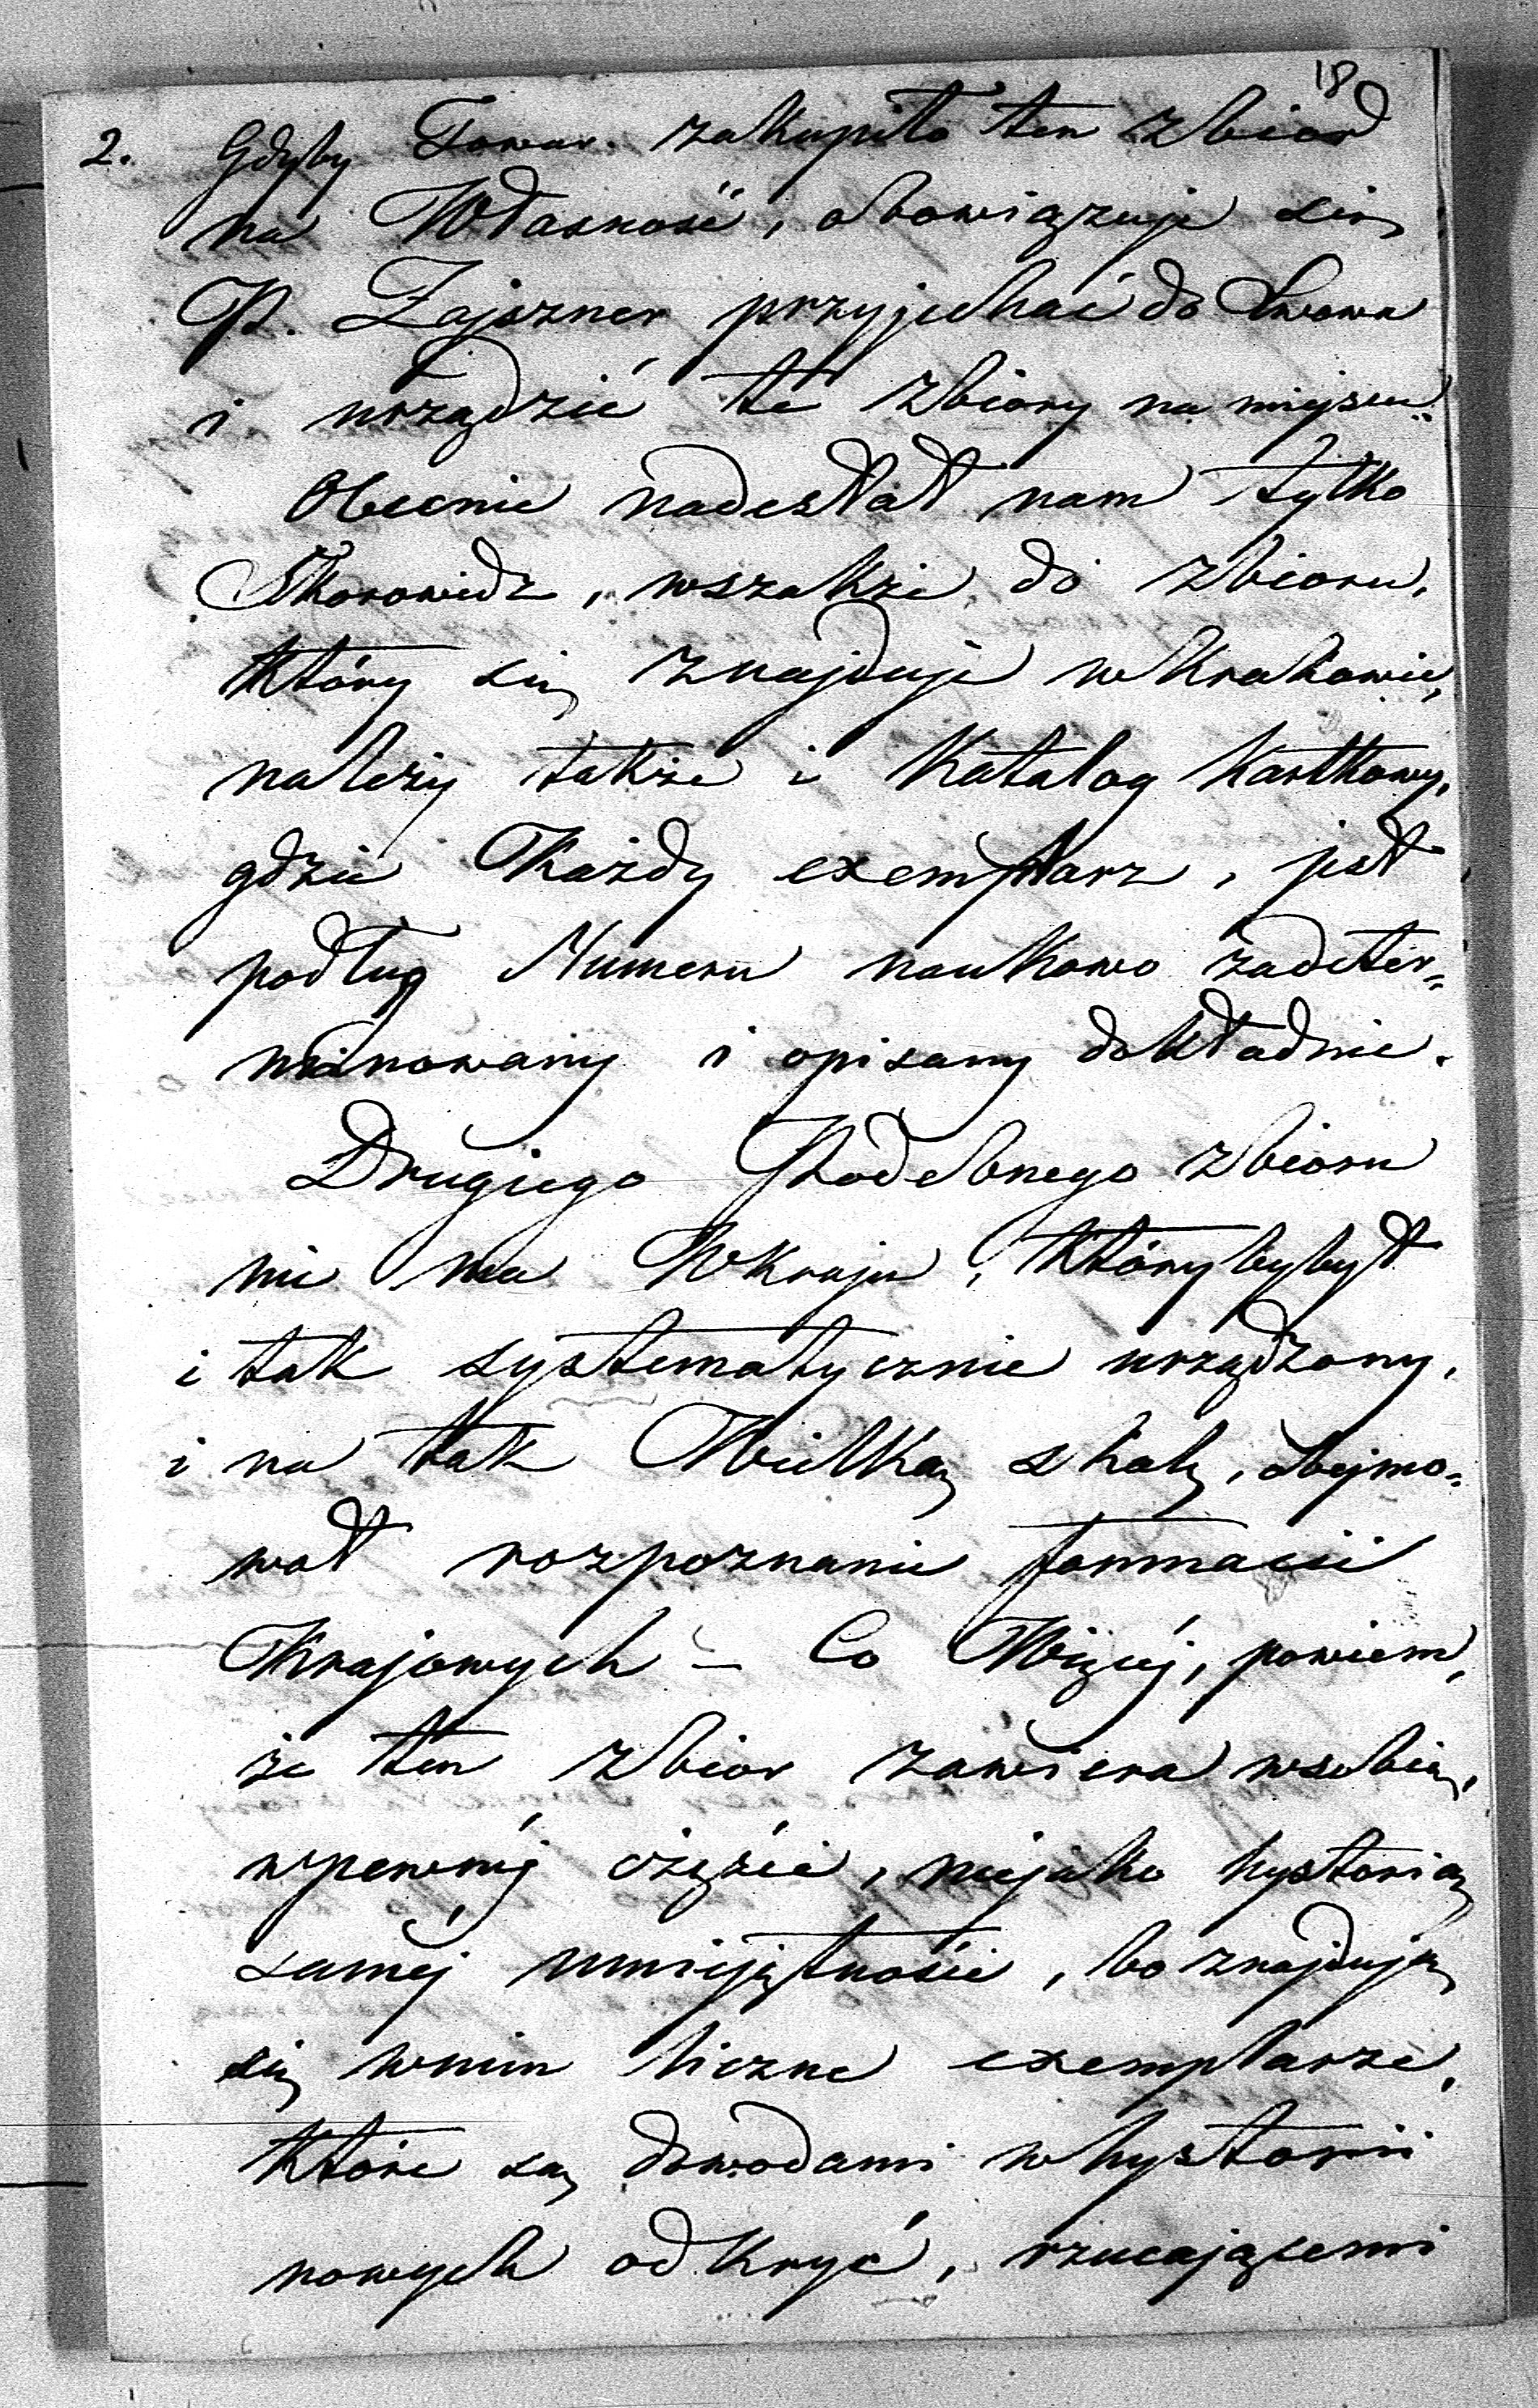 18
2. Gdyby Towar. zakupiło ten zbior
na Własność, obowiązuje się
P. Zajszner przyjechać do Lwowa
i urządzić te zbiory na miejscu.
Obecnie nadesłał nam tylko
Skorowidz, wszakże do zbioru,
który się znajduje w Krakowie,
należy także i Katalog Kartkowy,
gdzie Każdy exemplarz, jest
podług Numeru naukowo zadeter=
minowany i opisany dokładnie.
Drugiego Podobnego zbioru
nie ma W Kraju, któryby był
i tak systematycznie urządzony,
i na tak Wielką skalę, obejmo=
wał rozpoznanie formacii
Krajowych – Co Więcéj, powiem,
że ten zbior zawiera w sobie,
w pewnéj części, niejako hystorią
saméj umiejętności, bo znajdują
się w nim liczne exemplarze,
które są dowodami w hystorii
nowych odkryć, rzucającemi